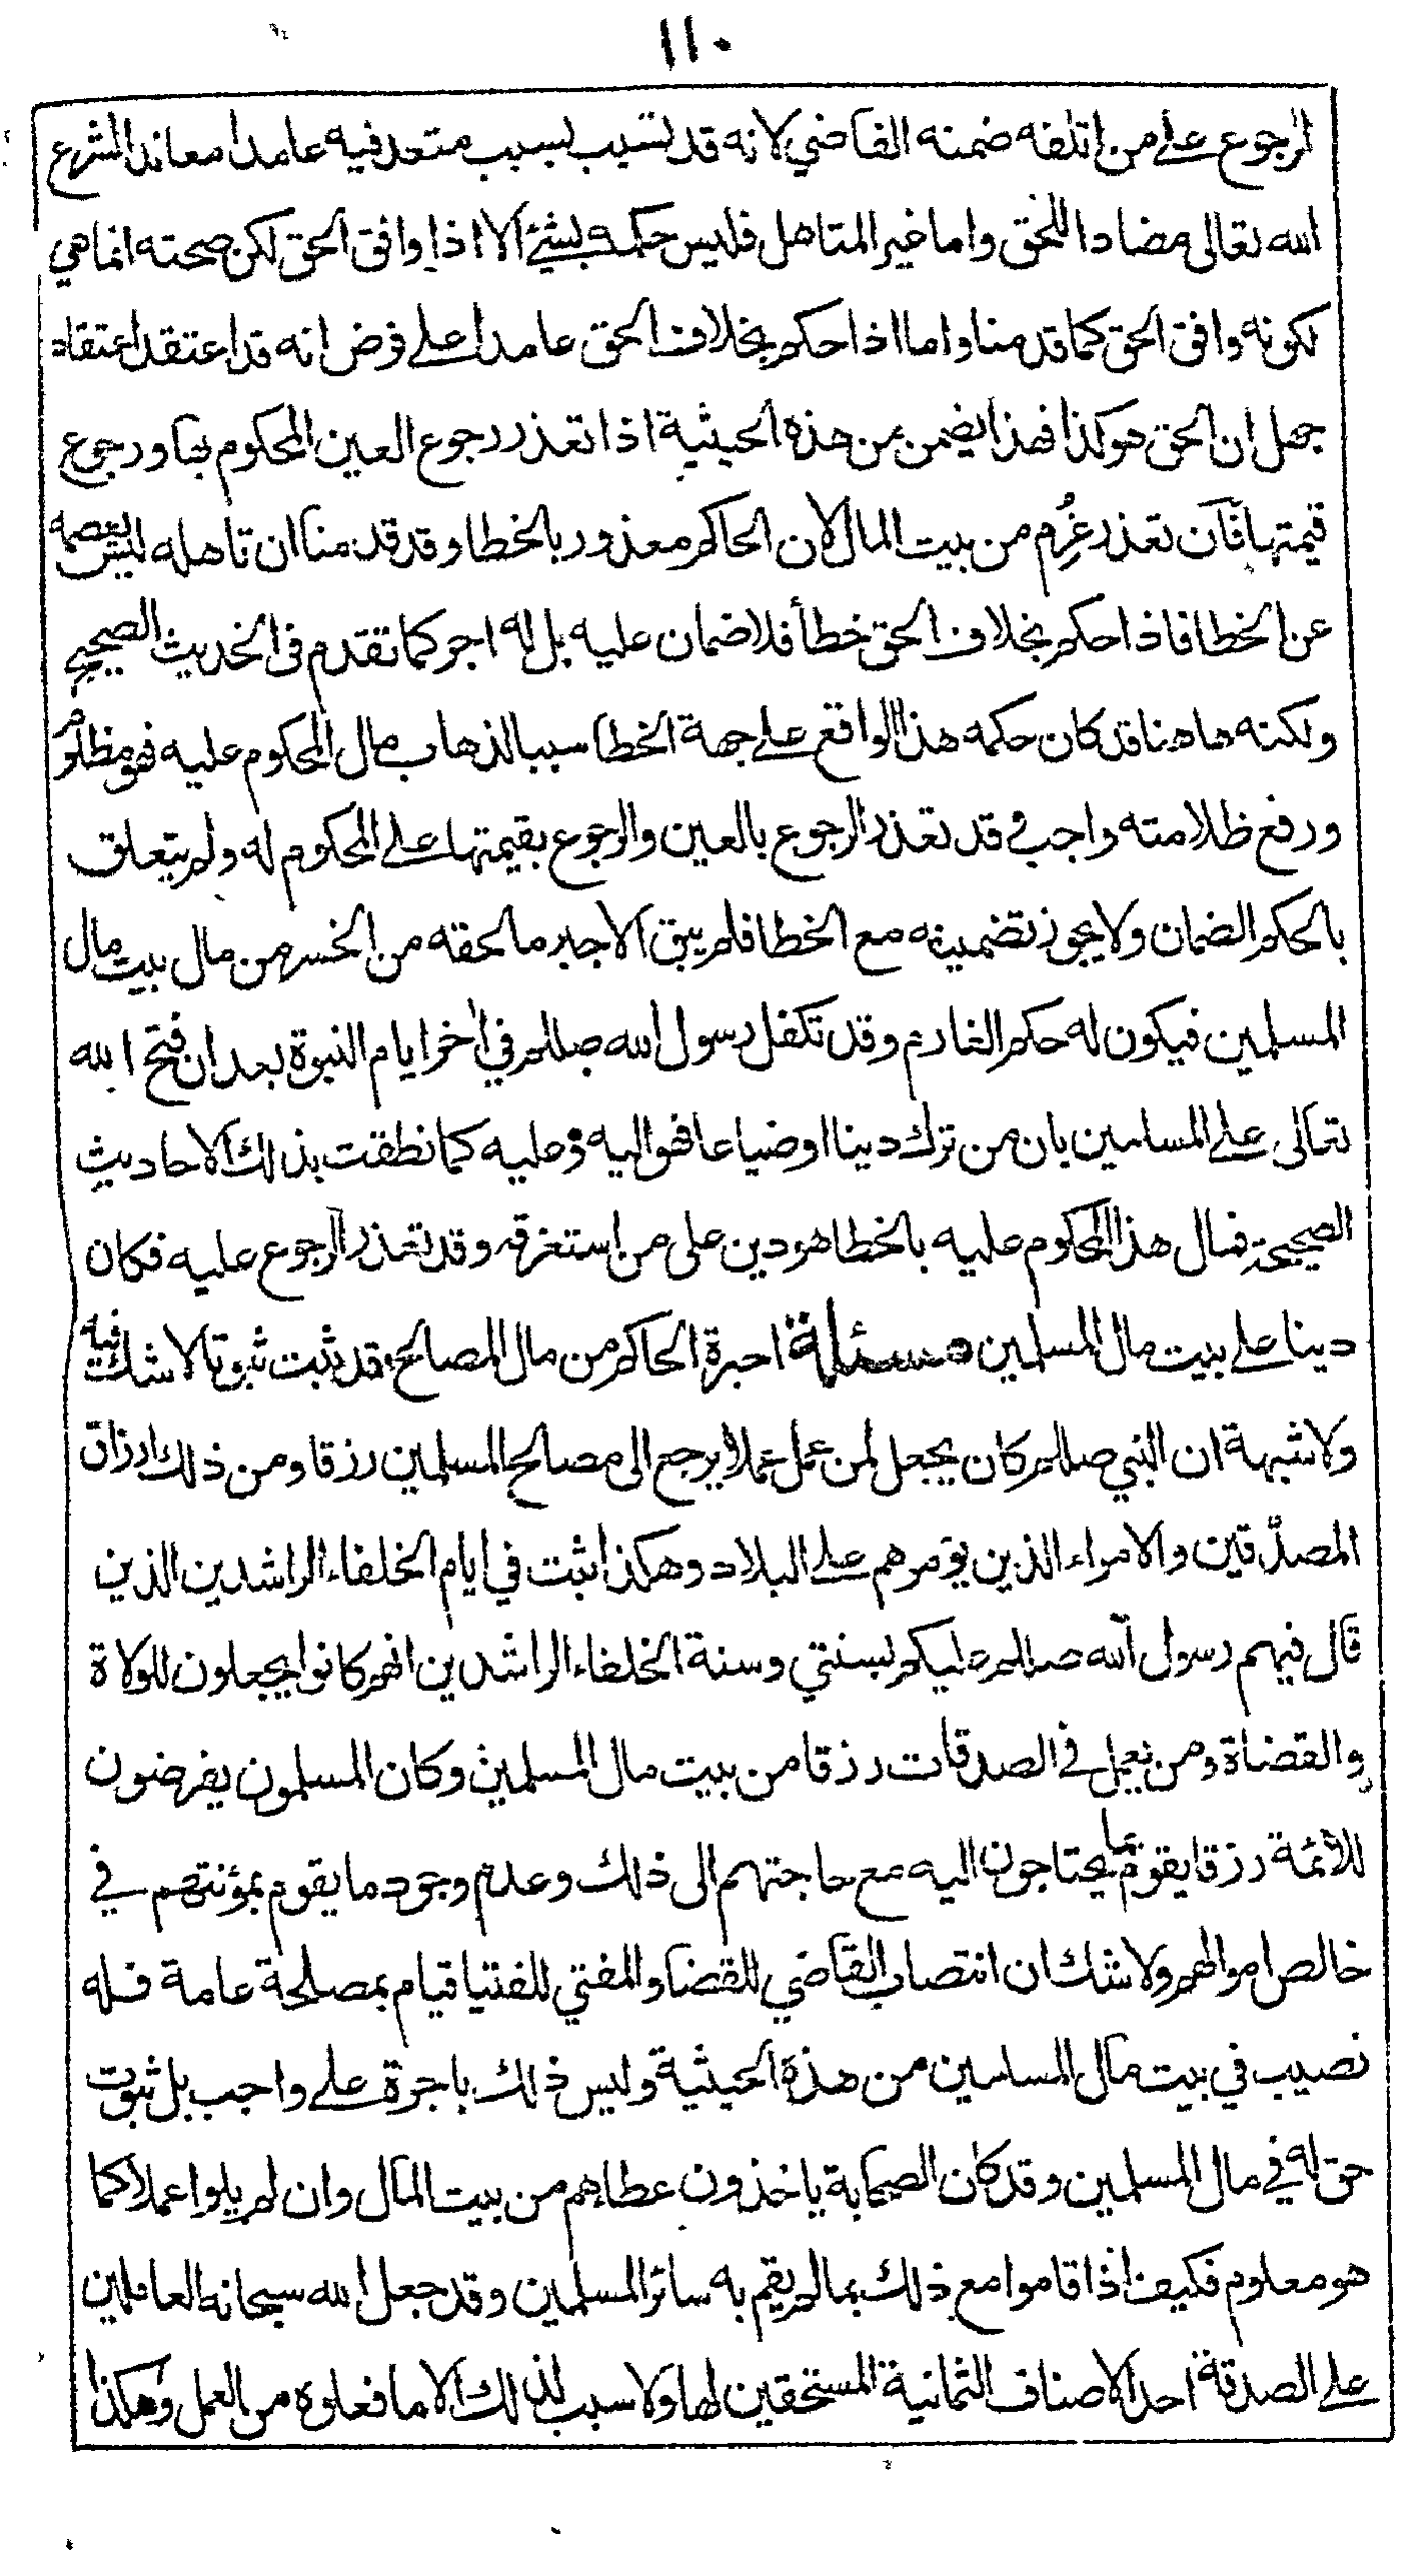 ١١٠
الرجوع على من اتلفه ضمنه القاضي لانه قد تسبب بسبب متعد فيه عامدا معاندا لشرع
الله تعالى مضادا للحق واما غير المتاهل فليس حكمه بشئ الا اذا وافق الحق لكن صحته انما هي
لكونه وافق الحق كما قدمنا واما اذا حكم بخلاف الحق عامدا على فرض انه قد اعتقد اعتقاد
جهل ان الحق هو كذا فهذا يضمن من هذه الحيثية اذا تعذر رجوع العين المحكوم بها ورجوع
قيمتها فآن تعذر غرم من بيت المال لان الحاكم معذور بالخطا وقد قدمنا ان تاهله ليس بعصمه
عن الخطا فاذا حكم بخلاف الحق خطأ فلا ضمان عليه بل له اجر كما تقدم فى الحديث الصحيح
ولكنه هاهنا قد كان حكمه هذا الواقع على جهة الخطا سببا لذهاب مال المحكوم عليه فهو مظلوم
ورفع ظلامته واجب وقد تعذر الرجوع بالعين والرجوع بقيمتها على المحكوم له ولم يتعلق
بالحكم الضمان ولا يجوز تضمينه مع الخطا فلم يبق الا جبر ما لحقه من الخسر من مال بيت مال
المسلمين فيكون له حكم الغارم وقد تكفل رسول الله صللم في اخر ايام النبوة بعد ان فتح الله
تعالى على المسلمين بان من ترك دينا او ضياعا فهو اليه وعليه كما نطقت بذلك الاحاديث
الصحيحة فمال هذا المحكوم عليه بالخطا هو دين على من استغرقه وقد تعذر الرجوع عليه فكان
دينا على بيت مال المسلمين مسئلة اجرة الحاكم من مال المصالح قد ثبت ثبوتا لا شك فيه
ولا شبهة ان النبي صللم كان يجعل لمن عمل عملا يرجع الى مصالح المسلمين رزقا ومن ذلك ارزاق
المصدّقين والامراء الذين يؤمرهم على البلاد وهكذا ثبت في ايام الخلفاء الراشدين الذين
قال فيهم رسول الله صللم عليكم بسنتي وسنة الخلفاء الراشدين انهم كانوا يجعلون للولاة
والقضاة ومن يعمل في الصدقات رزقا من بيت مال المسلمين وكان المسلمون يفرضون
للأئمة رزقا يقوم بما يحتاجون اليه مع حاجتهم الى ذلك وعدم وجود ما يقوم بمؤنتهم في
خالص اموالهم ولا شك ان انتصاب القاضي للقضا والمفتي للفتيا قيام بمصلحة عامة فله
نصيب في بيت مال المسلمين من هذه الحيثية وليس ذلك باجرة على واجب بل ثبوت
حق له في مال المسلمين وقد كان الصحابة ياخذون عطاهم من بيت المال وان لم يلوا عملا كما
هو معلوم فكيف اذا قاموا مع ذلك بما لم يقم به سائر المسلمين وقد جعل الله سبحانه العاملين
على الصدقة احد الاصناف الثمانية المستحقين لها ولا سبب لذلك الا ما فعلوه من العمل وهكذا